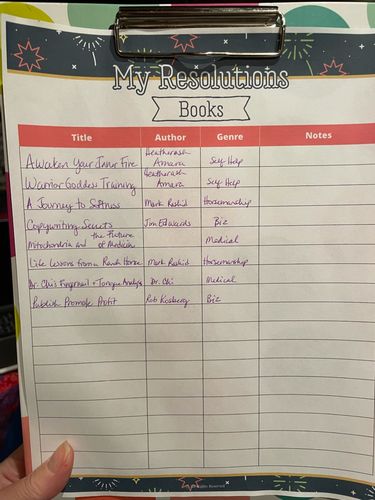 My Resolutions
Books
Title Author Genre Notes
Awaken Your Inner Fire Heatherash Amara Self Help
Warrior Goddess Training Heatherash Amara Self Help
A Journey to Softness Mark Rashid Horsemanship
Copywriting Secrets Jim Edwards Biz
Mitochondria and the Future of Medicine Medical
Life Lessons from a Ranch Horse Mark Rashid Horsemanship
Dr. Chi's Fingernail + Tongue Analysis Dr. Chi Medical
Publish Promote Profit Rob Kosberg Biz
Rights Reserved